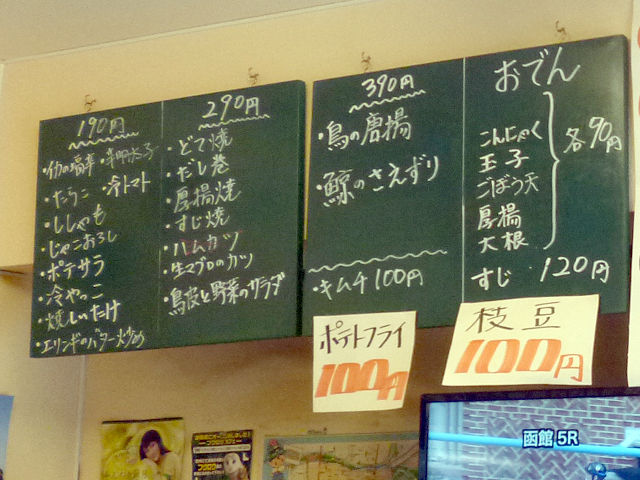 190円
・イカの塩辛 ・辛明太子
・たらこ ・冷トマト
・ししゃも
・じゃこおろし
・ポテサラ
・冷やっこ
・焼しいたけ
・エリンギのバター炒め
290円
・どて焼
・だし巻
・厚揚焼
・すじ焼
・ハムカツ
・生マグロのカツ
・鳥皮と野菜のサラダ
390円
・鳥の唐揚
・鯨のさえずり
・キムチ100円
おでん
こんにゃく
玉子
ごぼう天
厚揚
大根
各90円
すじ ・120円
ポテトフライ
100円
枝豆
100円
函館 5R